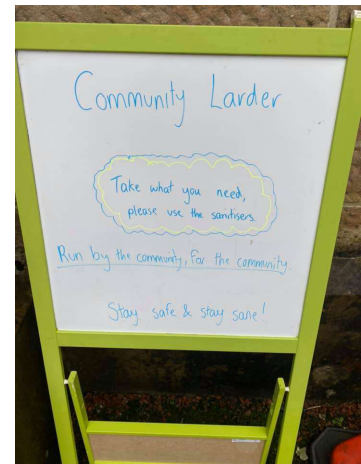 Community Larder
Take what you need,
please use the sanitisers.
Run by the community, for the community.
Stay safe & stay sane!